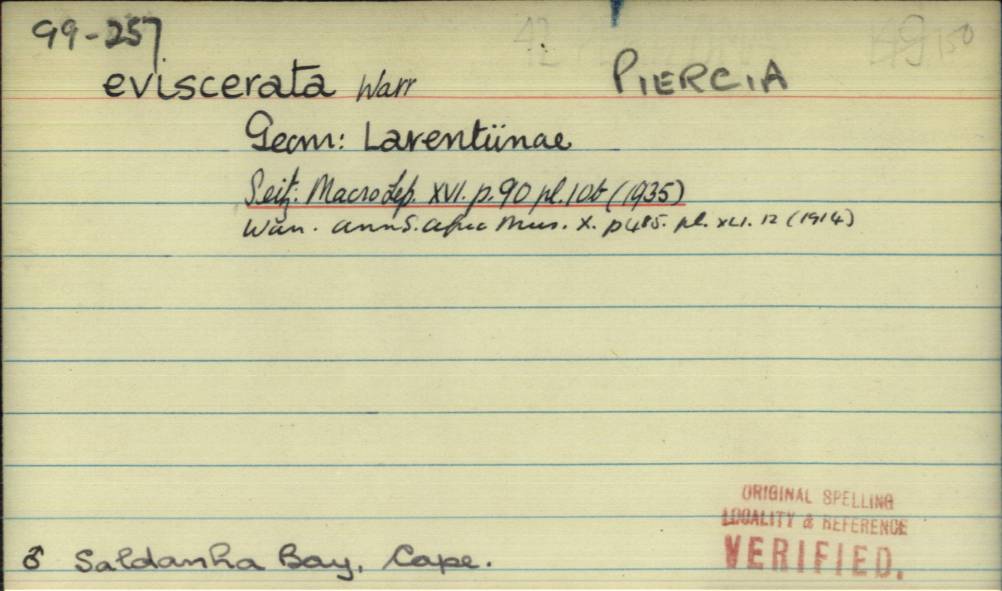 99-257
eviscerata Warr PIERCIA
Geom: Larentiinae
Seitz: Macro Lep. XVI. p. 90 pl. 10b (1935)
Warr. Ann S. Afric Mus. X. p485. pl. xli. 12 (1914)
ORIGINAL SPELLING
LOCALITY & REFERENCE
VERIFIED.
♂ Saldanha Bay, Cape.